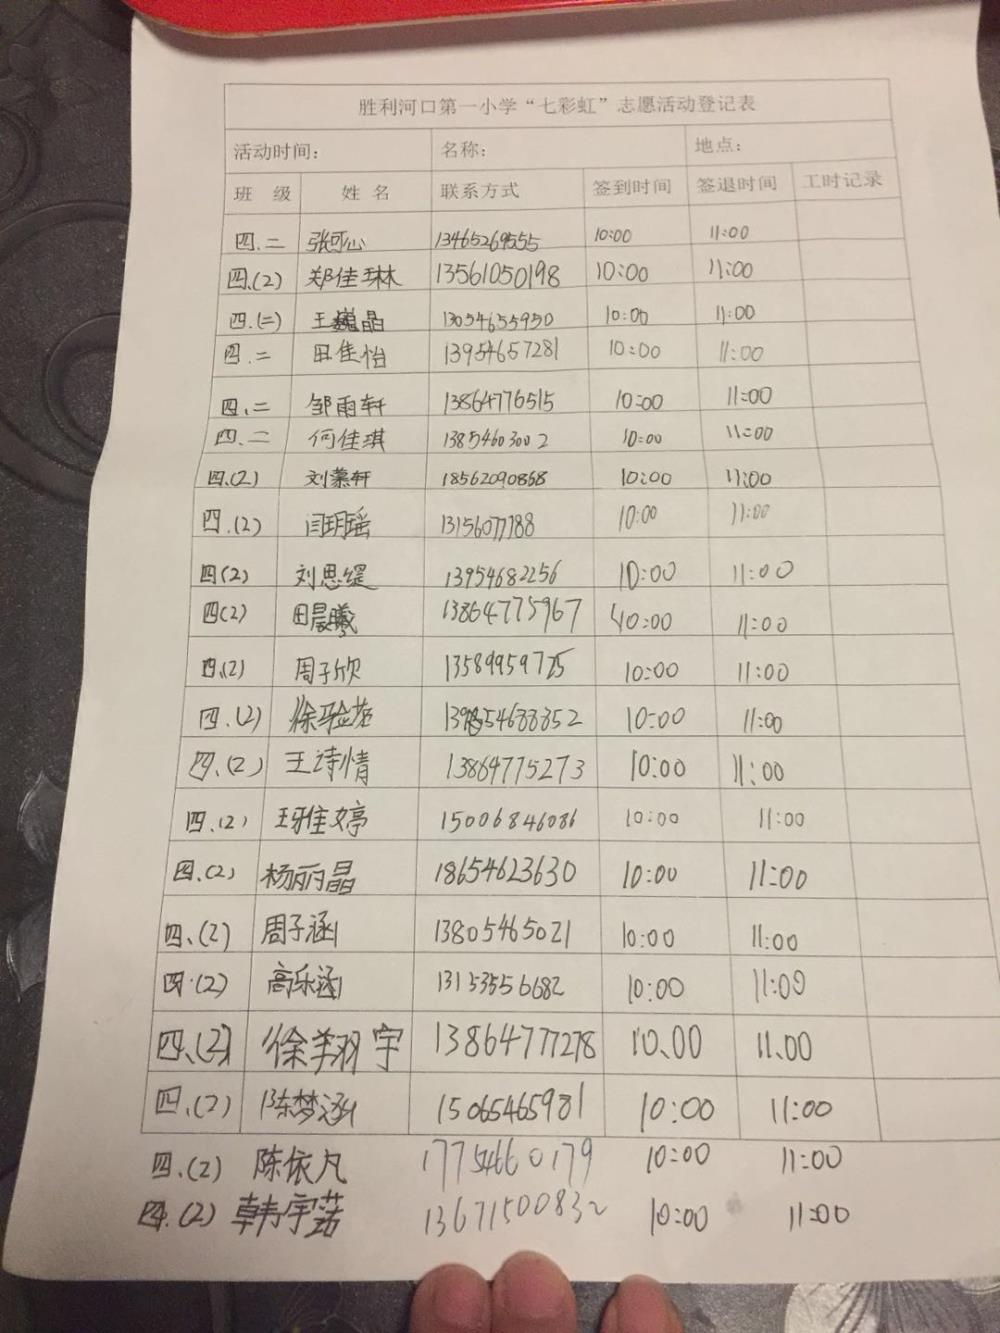 胜利河口第一小学“七彩虹”志愿活动登记表
活动时间： 名称： 地点：
班 级 姓 名 联系方式 签到时间 签退时间 工时记录
四.二 张可心 13465269555 10:00 11:00
四.(2) 郑佳琳 13561050198 10:00 11:00
四.(二) 王巍晶 13054655950 10:00 11:00
四.二 田佳怡 13954657281 10:00 11:00
四.二 邹雨轩 13864776515 10:00 11:00
四.二 何佳琪 13854603002 10:00 11:00
四.(2) 刘慕轩 18562090868 10:00 11:00
四.(2) 闫玥瑶 13156077188 10:00 11:00
四(2) 刘思缇 13954682256 10:00 11:00
四(2) 田晨曦 13864775967 10:00 11:00
四.(2) 周子欣 13589959725 10:00 11:00
四.(2) 10:00 11:00
四.(2) 王诗情 13864775273 10:00 11:00
四.(2) 王雅婷 15006846086 10:00 11:00
四.(2) 杨丽晶 18654623630 10:00 11:00
四、(2) 周子涵 13805465021 10:00 11:00
四.(2) 高乐涵 13153556682 10:00 11:00
四、(2) 徐翔宇 13864777278 10.00 11.00
四、(2) 陈梦涵 15065465981 10:00 11:00
四.(2) 陈依凡 17754660179 10:00 11:00
四.(2) 韩宇诺 13671500832 10:00 11:00